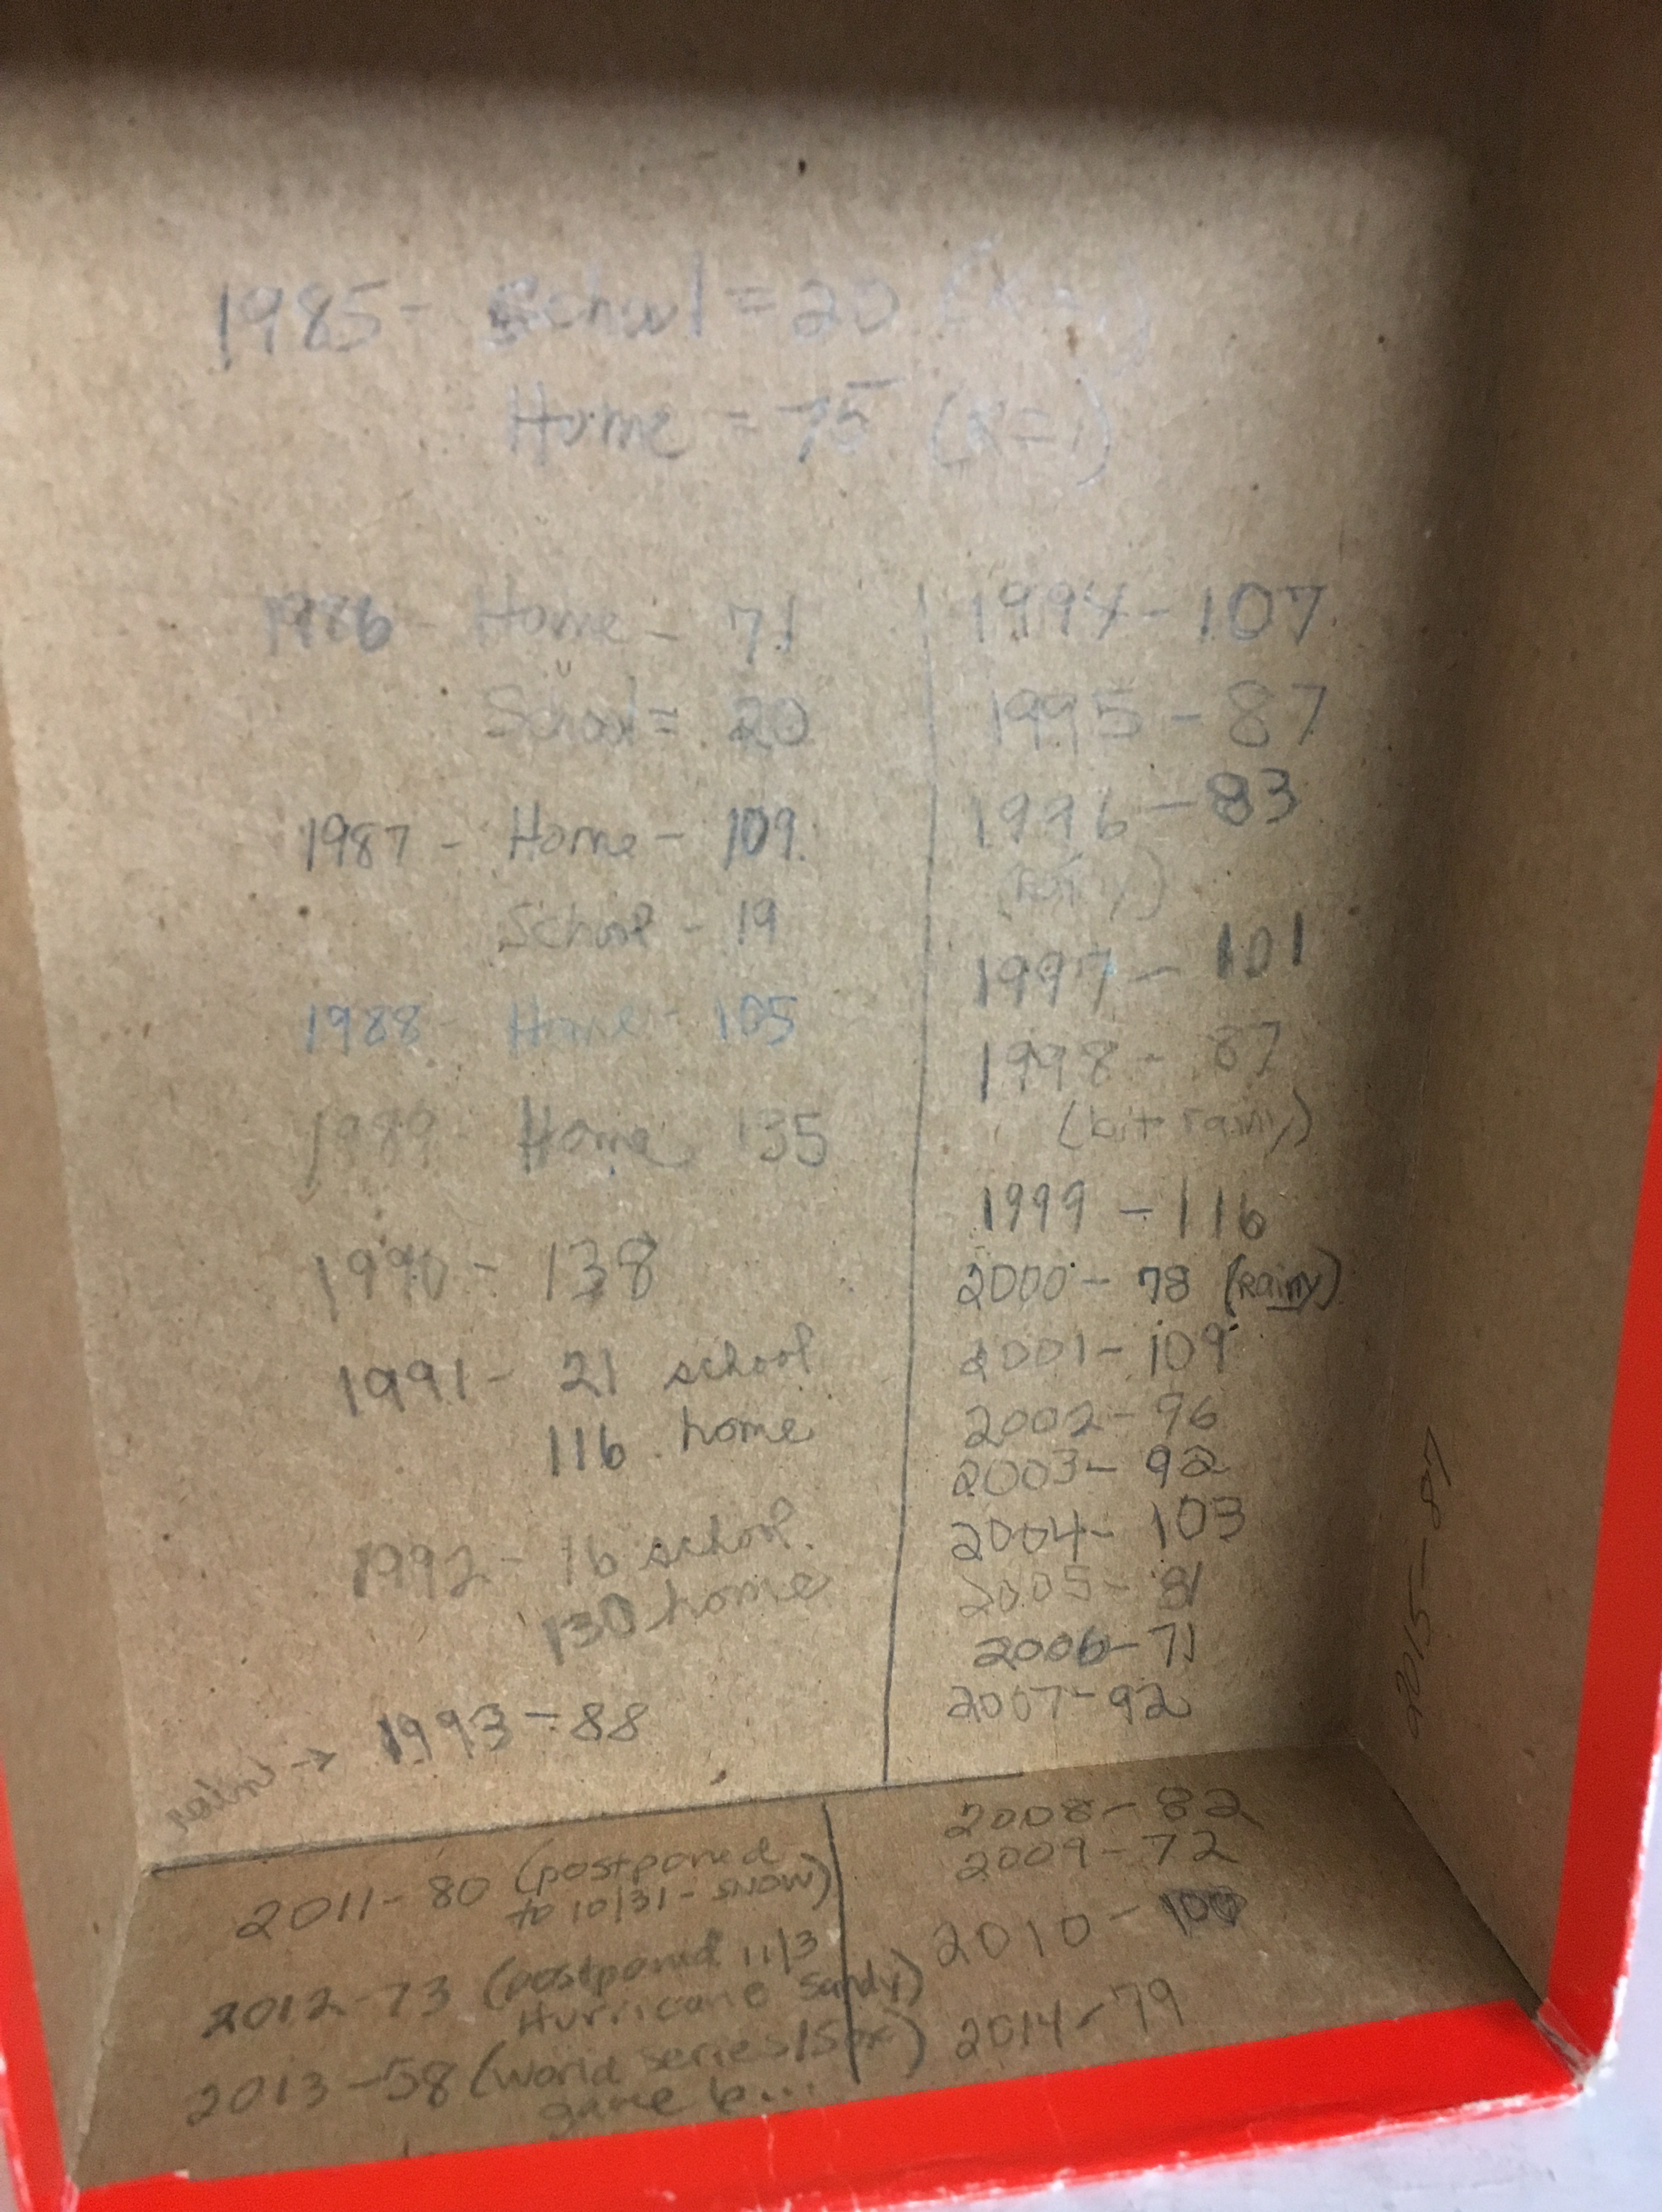 1985 - School = 20
Home = 75 (x=1)
1986 - Home - 71
School = 20
1987 - Home - 109
School - 19
1988 - Home - 105
1989 - Home 135
1990 - 138
1991 - 21 school
116 home
1992 - 16 school
130 home
rain → 1993 - 88
1994 - 107
1995 - 87
1996 - 83
1997 - 101
1998 - 87
(bit rainy)
1999 - 116
2000 - 78 (Rainy)
2001 - 109
2002 - 96
2003 - 92
2004 - 103
2005 - 81
2006 - 71
2007 - 92
2008 - 82
2009 - 72
2010 - 100
2011 - 80 (postponed
to 10/31 - snow)
2012 - 73 (postponed 11/3
Hurricane Sandy)
2013 - 58 (World Series/Sox)
game 6...
2014 - 79
2015 - 87